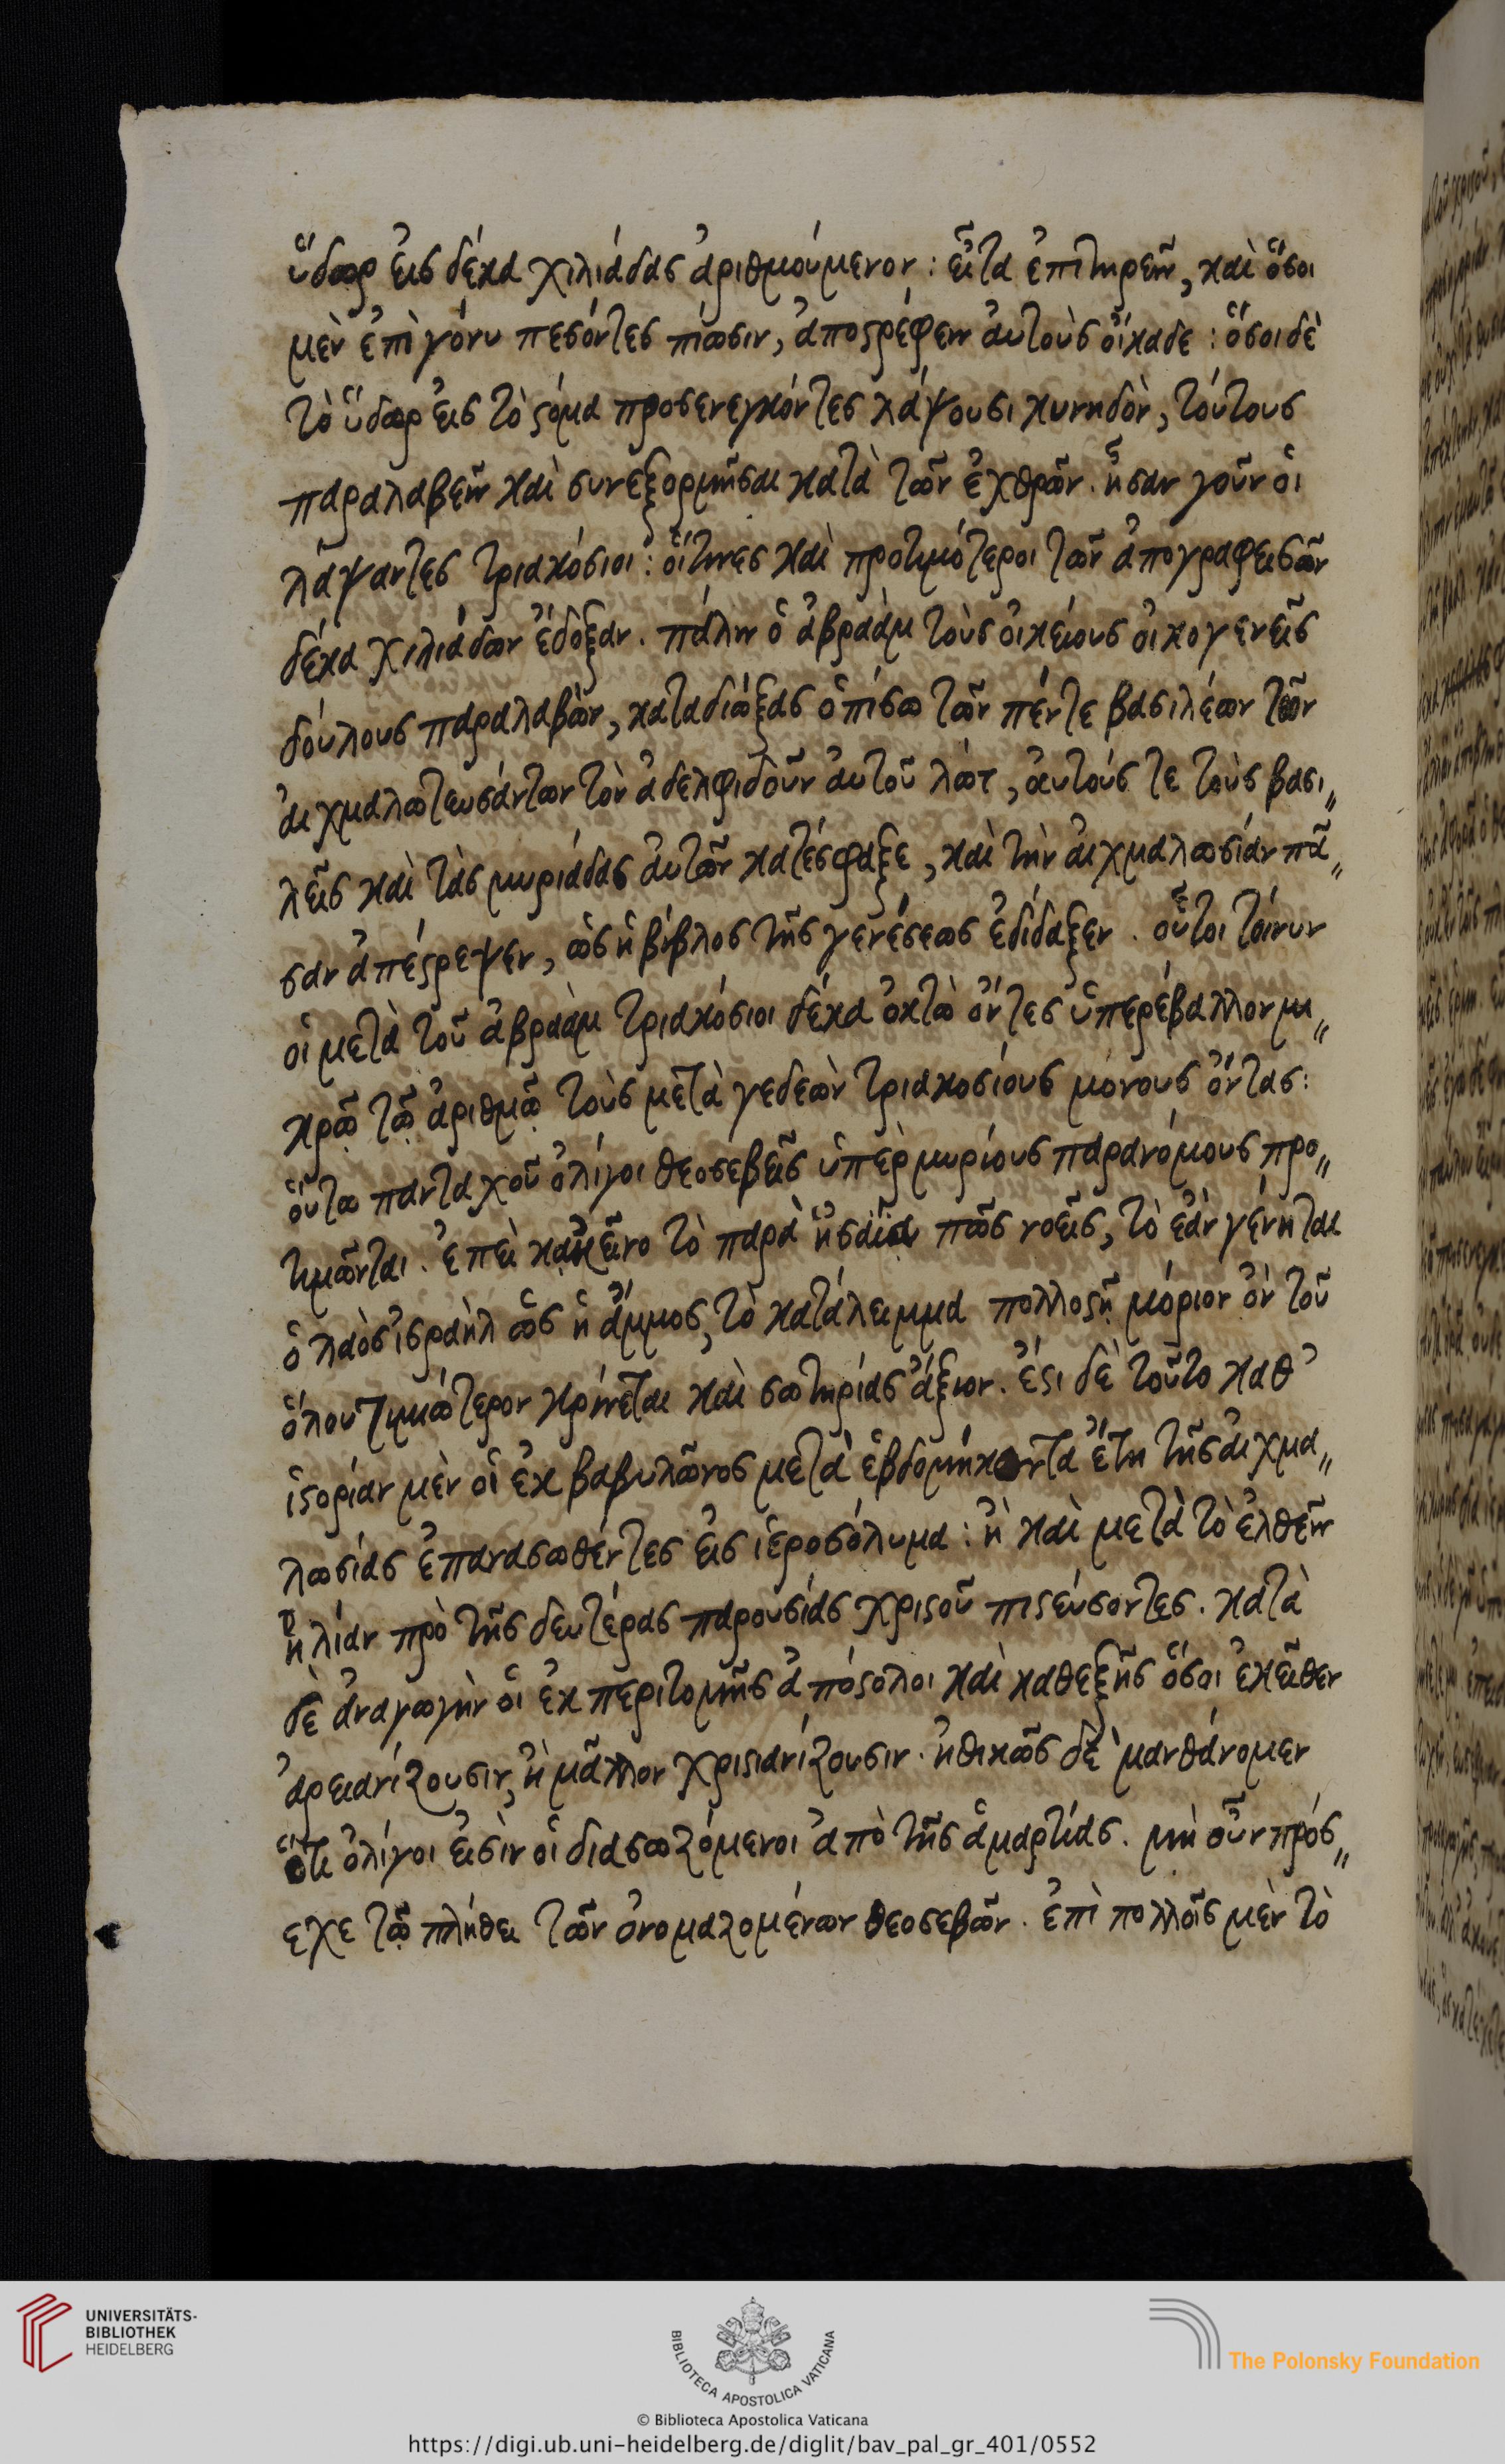 ὕδωρ εἰς δέκα χιλιάδας ἀριθμούμενον : εἶτα ἐπιτηρεῖν, καὶ ὅσοι
μὲν ἐπὶ γόνυ πεσόντες πίωσιν, ἀποστρέφειν αὐτοὺς οἴκαδε : ὅσοι δὲ
τὸ ὕδωρ εἰς τὸ στόμα προσενεγκόντες λάψουσι κυνηδὸν, τούτους
παραλαβεῖν καὶ συνεξορμῆσαι κατὰ τῶν ἐχθρῶν. ἦσαν γοῦν οἱ
λάψαντες τριακόσιοι : οἵτινες καὶ προτιμότεροι τῶν ἀπογραφεισῶν
δέκα χιλιάδων ἐδόξαν. πάλιν ὁ ἀβραὰμ τοὺς οἰκείους οἰκογενεῖς
δούλους παραλαβὼν, καταδιώξας ὀπίσω τῶν πέντε βασιλέων τῶν
αἰχμαλωτευσάντων τὸν ἀδελφιδοῦν αὐτοῦ λώτ, αὐτούς τε τοὺς βασι„
λεῖς καὶ τὰς μυριάδας αὐτῶν κατέσφαξε, καὶ τὴν αἰχμαλωσίαν πᾶ„
σαν ἀπέστρεψεν, ὡς ἡ βίβλος τῆς γενέσεως ἐδίδαξεν. οὗτοι τοίνυν
οἱ μετὰ τοῦ ἀβραὰμ τριακόσιοι δέκα ὀκτὼ ὄντες ὑπερέβαλλον μι„
κρῷ τῷ ἀριθμῷ τοὺς μετὰ γεδεὼν τριακοσίους μόνους ὄντας:
οὕτω πανταχοῦ ὀλίγοι θεοσεβεῖς ὑπὲρ μυρίους παρανόμους προ„
τιμῶνται. ἐπεὶ κἀκεῖνο τὸ παρὰ ἡσαΐᾳ πῶς νοεῖς, τὸ ἐὰν γένηται
ὁ λαὸς ἰσραὴλ ὡς ἡ ἄμμος, τὸ κατάλειμμα πολλοστῇ μόριον ὂν τοῦ
ὅλου τιμιώτερον κρίνεται καὶ σωτηρίας ἄξιον. ἔστι δὲ τοῦτο καθ᾽
ἱστορίαν μὲν οἱ ἐκ βαβυλῶνος μετὰ ἑβδομήκοντα ἔτη τῆς αἰχμα„
λωσίας ἐπανασωθέντες εἰς ἱεροσόλυμα : ἢ καὶ μετὰ τὸ ἐλθεῖν
ἠλίαν πρὸ τῆς δευτέρας παρουσίας χριστοῦ πιστεύσοντες. κατὰ
δὲ ἀναγωγὴν οἱ ἐκ περιτομῆς ἀπόστολοι καὶ καθεξῆς ὅσοι ἐκεῖθεν
ἀρειανίζουσιν, ἢ μᾶλλον χριστιανίζουσιν. ἠθικῶς δὲ μανθάνομεν
ὅτι ὀλίγοι εἰσὶν οἱ διασωζόμενοι ἀπὸ τῆς ἁμαρτίας. μὴ οὖν πρόσ„
εχε τῷ πλήθει τῶν ὀνομαζομένων θεοσεβῶν. ἐπὶ πολλοῖς μὲν τὸ
UNIVERSITÄTS-
BIBLIOTHEK
HEIDELBERG
BIBLIOTECA APOSTOLICA VATICANA
The Polonsky Foundation
© Biblioteca Apostolica Vaticana
https://digi.ub.uni-heidelberg.de/diglit/bav_pal_gr_401/0552